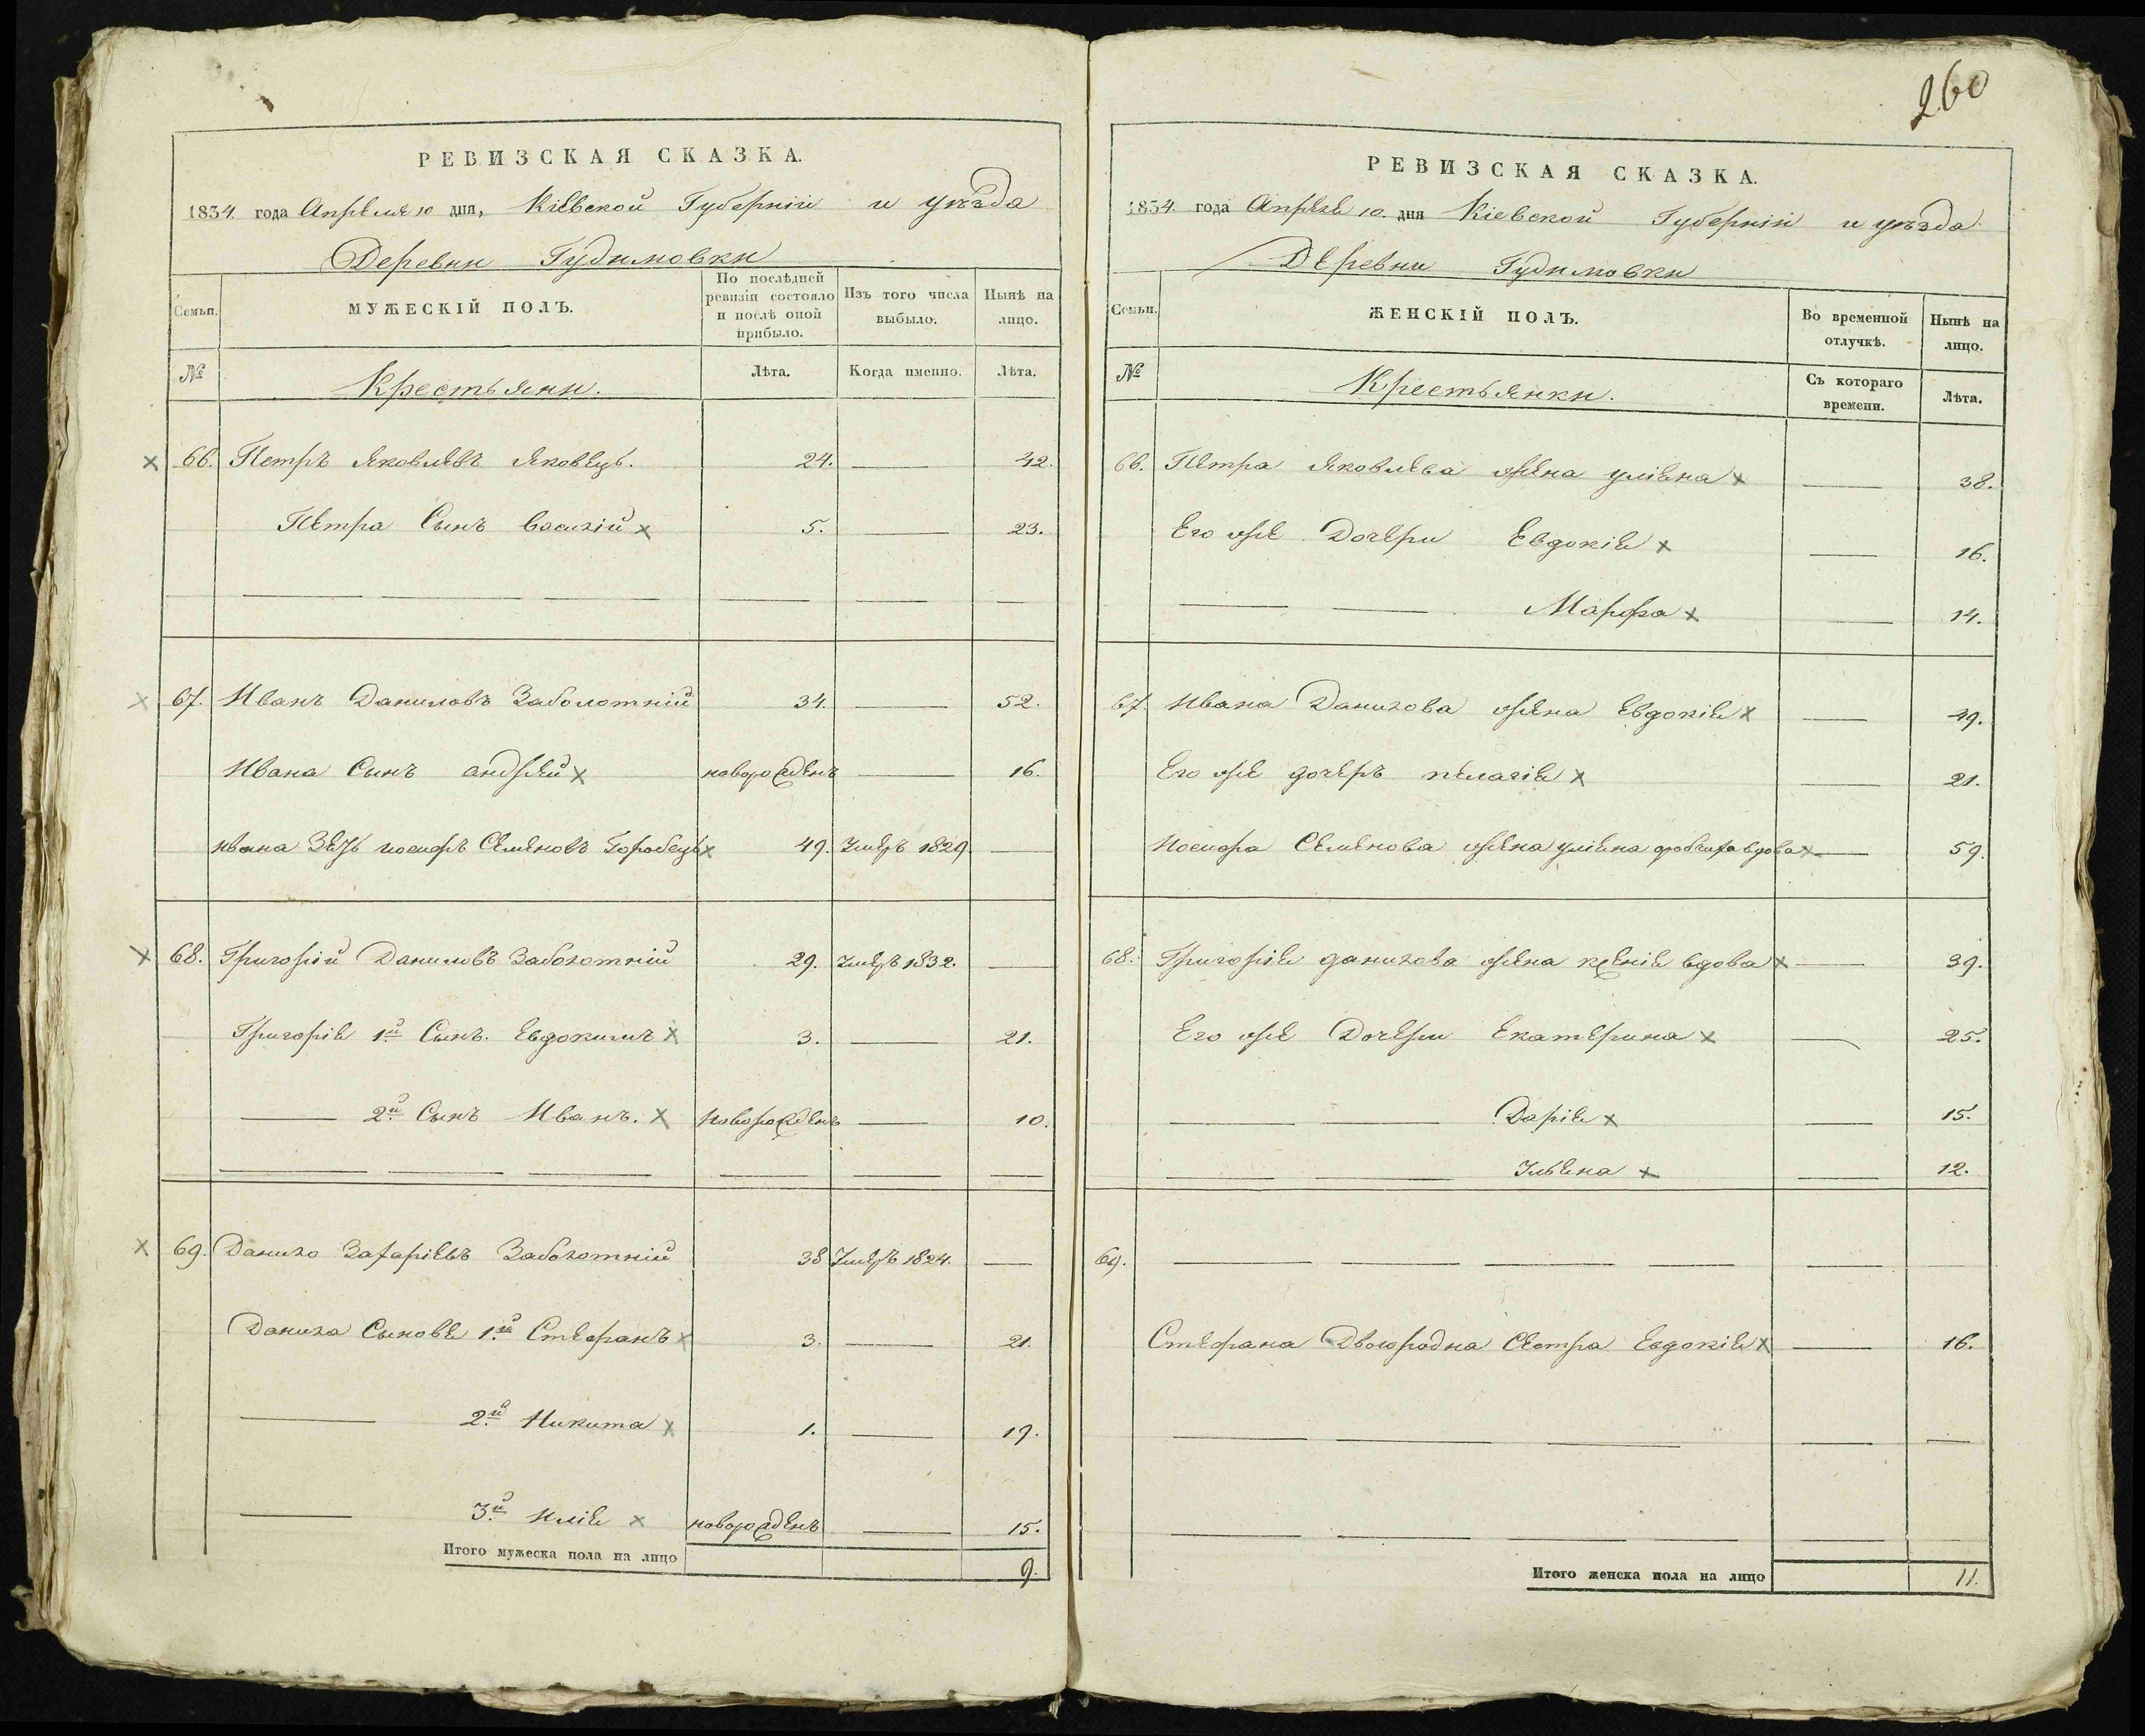 260
РЕВИЗСКАЯ СКАЗКА.
1834. года Апреля 10 дня, Кіевской Губерніи и уезда
Деревни Гудимовки
Семьи.
МУЖЕСКІЙ ПОЛЪ.
По послѣдней ревизіи состояло и послѣ оной прибыло.
Изъ того числа выбыло.
Нынѣ на лицо.
№
Крестьяни.
Лѣта.
Когда именно.
Лѣта.
66. Петръ Яковлевъ Яковецъ. 24. 42.
Петра Сынъ Василій 5. 23.
67. Иванъ Даниловъ Заболотній 34. 52.
Ивана Сынъ андрей новорожденъ 16.
ивана Зять иосифъ Семеновъ Горобецъ 49. Умеръ 1829.
68. Григорій Даниловъ Заболотній 29. Умеръ 1832.
Григорія 1й Сынъ. Евдокимъ 3. 21.
2й Сынъ Иванъ. новорожденъ 10.
69. Данило Захаріевъ Заболотній 38 Умеръ 1824.
Данила Сынове 1й Стефанъ 3. 21.
2й Никита 1. 19.
3й илія новорожденъ 15.
Итого мужеска пола на лицо 9.
РЕВИЗСКАЯ СКАЗКА.
1834. года Апреля 10. дня Кіевской Губерніи и уезда
Деревни Гудимовки
Семьи.
ЖЕНСКІЙ ПОЛЪ.
Во временной отлучкѣ.
Нынѣ на лицо.
№
Крестьянки.
Съ котораго времени.
Лѣта.
66. Петра Яковлева жена уліяна 38.
Его же Дочери Евдокія 16.
Марфа 14.
67. Ивана Данилова жена Евдокія 49.
Его же дочеръ пелагія 21.
Иосифа Семенова жена уліяна вдова 59.
68. Григорія данилова жена ксенія вдова 39.
Его же Дочери Екатерина 25.
Дарія 15.
Ульяна 12.
69.
Стефана Двоюродна Сестра Евдокія 16.
Итого женска пола на лицо 11.